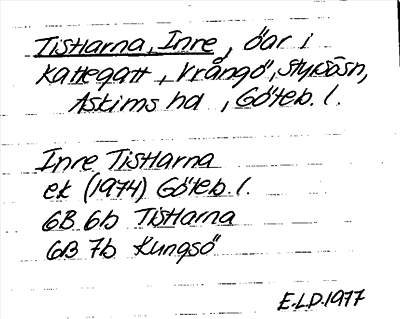 Tistlarna, Inre, öar i
Kattegatt, Vrångö, Styrsösn,
Askims hd, Göteb. l.
Inre Tistlarna
ek (1974) Göteb. l.
6B 6b Tistlarna
6B 7b Kungsö
E.L.D. 1977